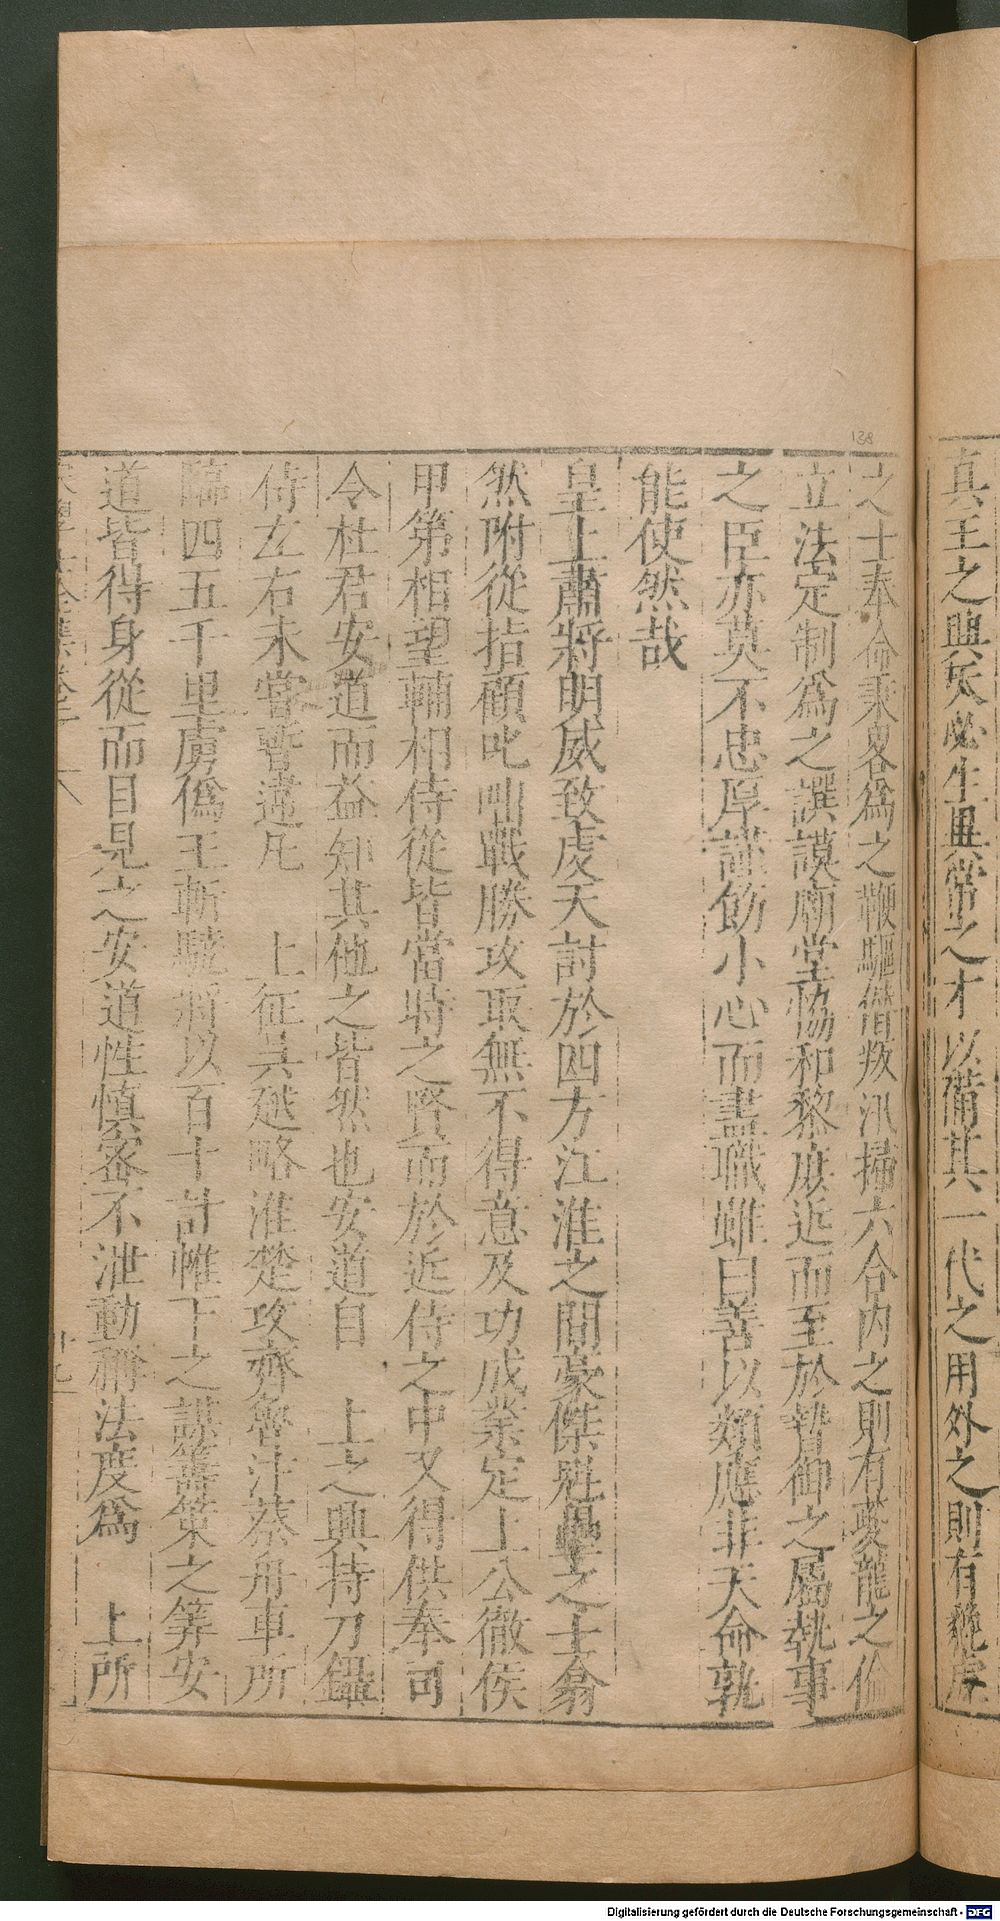 真王之興天必生異常之才以備其一代之用外之則有
138
之士奉命秉畧為之鞭驅僭叛汛掃六合內之則有夔龍之倫
立法定制為之譔謨廟堂恊和黎庶近而至於暬御之屬執事
之臣亦莫不忠厚謹飭小心而盡職雖曰善以類應非天命孰
能使然哉
皇上肅將明威致虔天討於四方江淮之間豪傑之士翕
然附從指顧叱𠮟戰勝攻取無不得意及功成業定上公徹侯
甲第相望輔相侍從皆當時之賢而於近侍之中又得供奉司
令杜君安道而益知其他之皆然也安道自 上之興持刀鑷
侍左右未嘗暫違凡 上征吳越略淮楚攻齊魯汴蔡舟車所
臨四五千里虜僞王斬驍將以百十計帷下之謀籌策之筭安
道皆得身從而目見之安道性慎密不泄動稱法度為 上所
Digitalisierung gefördert durch die Deutsche Forschungsgemeinschaft - DFG